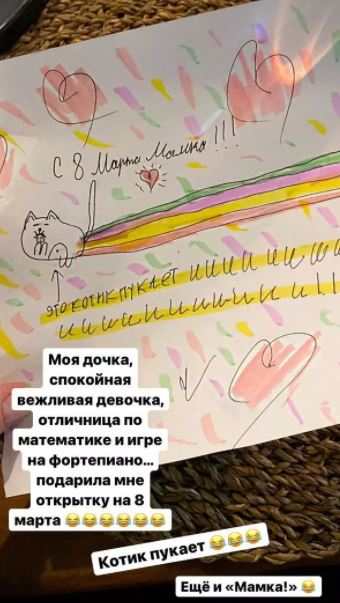 С 8 Марта Мамка!!!
ЭТО КОТИК ПУКАЕТ ИИИИ ИИ ИИ И И
И И И И И И И И И И И И И !!
Моя дочка,
спокойная
вежливая девочка,
отличница по
математике и игре
на фортепиано...
подарила мне
открытку на 8
марта 😂😂😂😂😂😂
Котик пукает 😂😂😂
Ещё и «Мамка!» 😂